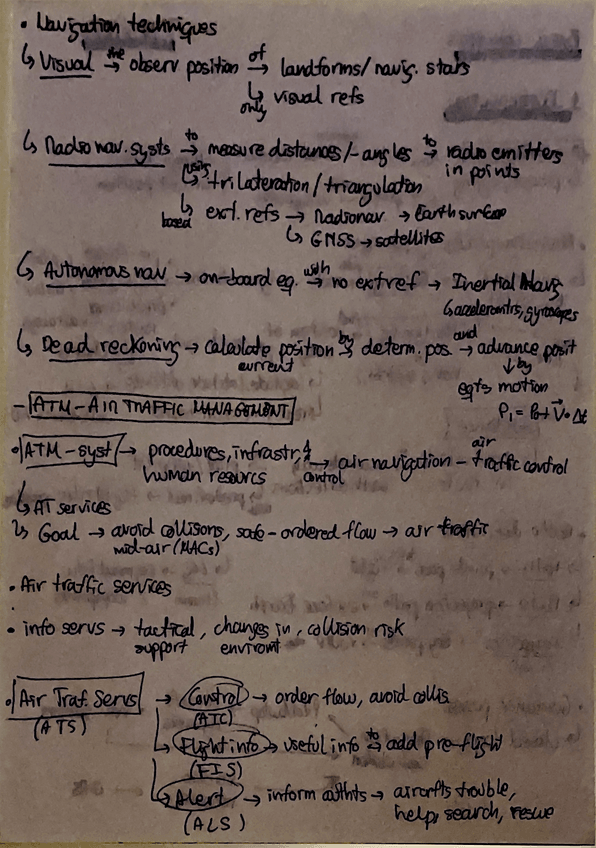 • Navigation techniques
↳ Visual → the observ position → of landforms/navig. stars
↳ only visual refs
↳ Radio nav. systs → to measure distances/-angles → to radio emitters in points
↳ using trilateration/triangulation
↳ based ext. refs → Radionav → Earth surface
↳ GNSS → satellites
↳ Autonomous nav → on-board eq. → with no ext ref → Inertial Navig
↳ acceleromtrs, gyroscopes
↳ Dead reckoning → calculate current position → by determ. pos. → and advance posit
↓ by
eqts motion
P₁ = P₀ + V⃗ · Δt
- ATM-AIR TRAFFIC MANAGEMENT
• ATM-syst → procedures, infrastr, & human resourcs → control air navigation - air traffic control
↳ AT services
↳ Goal → avoid collisons, safe-ordered flow → air traffic
mid-air (MACs)
• Air traffic services
• info servs → tactical support, changes in enviromt, collision risk
• Air Traf. Servs (ATS) → Control (AIC) → order flow, avoid collis
↳ Flight info (FIS) → useful info → to add pre-flight
↳ Alert (ALS) → inform authts → aircrfts trouble,
help, search, rescue